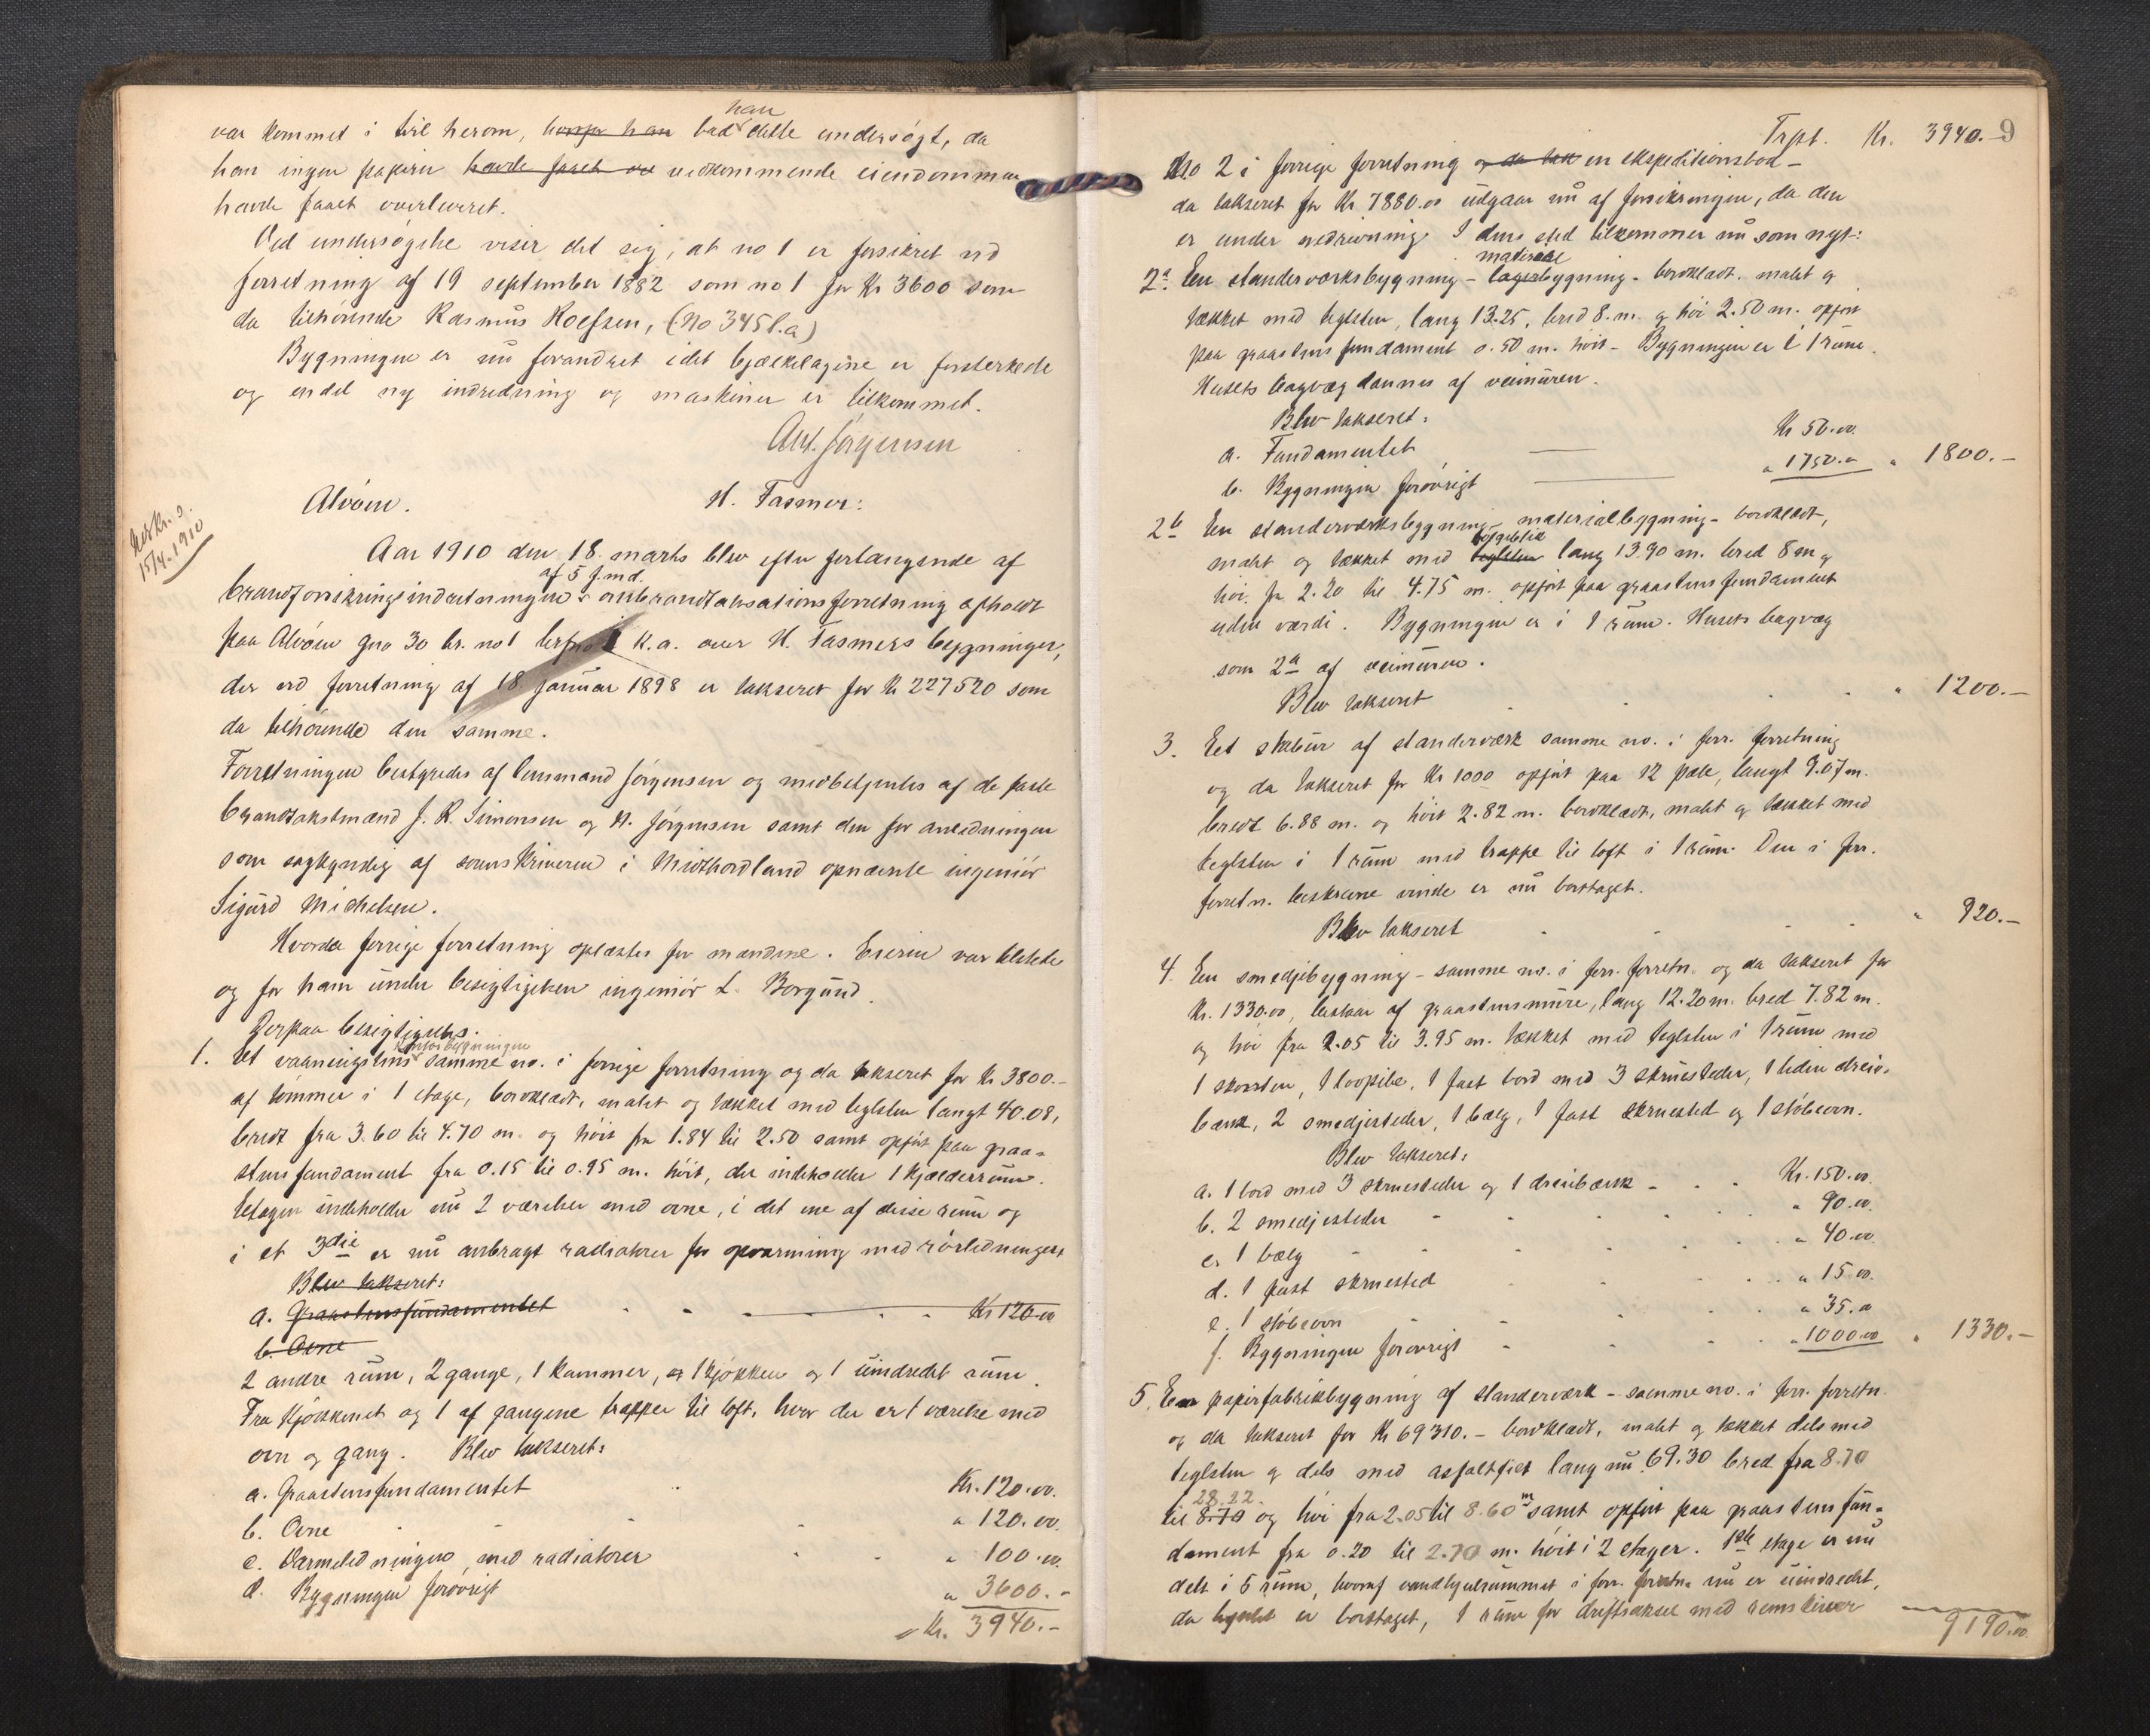 var kommet i tvil herom, bad han dette undersøgt, da
han ingen papirer havde faaet vedkommende eiendommen
havde faaet overleveret.
Ved undersøgelse viser det sig, at no 1 er forsikret ved
forretning af 19 september 1882 som no 1 for Kr 3600 som
da tilhørende Rasmus Roefsen, (No 345 l.a)
Bygningen er nu forandret idet bjælkelagene er forsterkede
og endel ny indredning og maskiner er tilkommet.
Ant. Jørgensen
15/4.1910
Alvøen. H. Fasmer:
Aar 1910 den 18. marts blev efter forlangende af
brandforsikringsindretningen af 5 f.md. ombrandtaksationsforretning afholdt
paa Alvøen gno 30 br. no 1 K.a. over H. Fasmers bygninger,
der ved forretning af 18 januar 1898 er takseret for Kr 227520 som
da tilhørende den samme.
Forretningen bestyredes af lensmand Jørgensen og medbetjentes af de faste
brandtakstmænd J. R. Simonsen og N. Jørgensen samt den for anledningen
som sagkyndig af sorenskriveren i Midthordland opnævnte ingeniør
Sigurd Michelsen.
Hvorda forrige forretning oplæstes for mændene. Eieren var tilstede
og for ham under besigtigelsen ingeniør L. Borgund.
Derpaa besigtigedes.
1. Et vaaningshus kontorbygningen samme no. i forrige forretning og da takseret for Kr 3800.-
af tømmer i 1 etage, bordklædt, malet og tækket med teglsten langt 40.08,
bredt fra 3.60 til 4.70 m. og høit fra 1.84 til 2.50 samt opført paa graa-
stensfundament fra 0.15 til 0.95 m. høit, der indeholder 1 kjælderrum.
Etagen indeholder nu 2 værelser med ovne, i det ene af disse rum og
i et 3die er nu anbragt radiatorer for opvarmning med rørledninger,
Blev takseret:
a. Graastensfundamentet Kr 120.00
b. Ovne
2 andre rum, 2 gange, 1 kammer, 1 kjøkken og 1 uindredet rum.
Fra kjøkkenet og 1 af gangene trapper til loft, hvor der er 1 værelse med
ovn og gang. Blev takseret:
a. Graastensfundamentet Kr. 120.00.
b. Ovne " 120.00.
c. Varmeledningen med radiatorer " 100.00.
d. Bygningen forøvrigt " 3600.-
Kr. 3940.-
9
Trpt. Kr. 3940.-
No 2 i forrige forretning og da tak en ekspeditionsbod -
da takseret for Kr 7880.00 udgaar nu af forsikringen, da den
er under nedrivning. I dens sted tilkommer nu som nyt:
2a. En standerværksbygning - materialbygning - bordklædt, malet og
tækket med teglsten, lang 13.25, bred 8. m. og høi 2.50 m. opført
paa graastensfundament 0.50 m. høit - Bygningen er i 1 rum.
Husets bagvæg dannes af veimuren.
Blev takseret:
a. Fundamentet Kr 50.00.
b. Bygningen forøvrigt " 1750.- " 1800.-
2b En standerværksbygning - materialbygning - bordklædt,
malet og tækket med bølgeblik teglsten lang 13.90 m. bred 8 m og
høi fra 2.20 til 4.75 m. opført paa graastensfundament
uden værdi. Bygningen er i 1 rum. Husets bagvæg
som 2a af veimuren.
Blev takseret " 1200.-
3. Eet stabur af standerværk samme no. i forr. forretning
og da takseret for Kr 1000 opført paa 12 pæle, langt 9.07 m.
bredt 6.88 m. og høit 2.82 m. bordklædt, malet og tækket med
teglsten i 1 rum med trappe til loft i 1 rum. Den i forr.
forretn. beskrevne vinde er nu borttaget.
Blev takseret " 920.-
4. En smedjebygning - samme no. i forr. forretn. og da takseret for
Kr. 1330.00, bestaar af graastensmure, lang 12.20 m. bred 7.82 m.
og høi fra 2.05 til 3.95 m. tækket med teglsten i 1 rum med
1 skorsten, 1 loopibe, 1 fast bord med 3 skruesteder, 1 liden dreie-
bænk, 2 smedjesteder, 1 bælg, 1 fast skruested og 1 støbeovn.
Blev takseret:
a. 1 bord med 3 skruesteder og 1 dreiebænk - Kr. 150.00.
b. 2 smedjesteder " 90.00.
c. 1 bælg " 40.00.
d. 1 fast skruested " 15.00.
e. 1 støbeovn " 35.00
f. Bygningen forøvrigt " 1000.00 " 1330.-
5. En papirfabrikbygning af standerværk - samme no. i forr. forretn.
og da takseret for Kr 69310.- bordklædt, malet og tækket dels med
teglsten og dels med asfaltfilt lang nu 69.30 bred fra 8.70
til 8.70 28.22. og høi fra 2.05 til 8.60 m samt opført paa graastensfun-
dament fra 0.20 til 2.70 m. høit i 2 etager. 1ste etage er nu
delt i 5 rum, hvoraf vandhjulrummet i forr. forretn. nu er uindredet,
da hjulet er borttaget, 1 rum for driftsaksel med remskiver
9190.00.